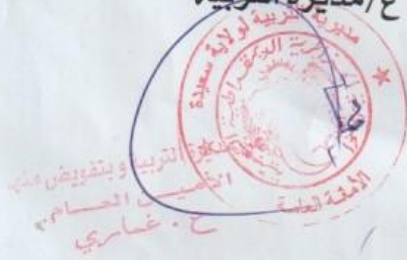 ع/مديرة التربية
مديرية التربية لولاية سعيدة
الأمانة العامة
عن مديرة التربية و بتفويض منها
الأميـــن العـــــام
ح . غماري